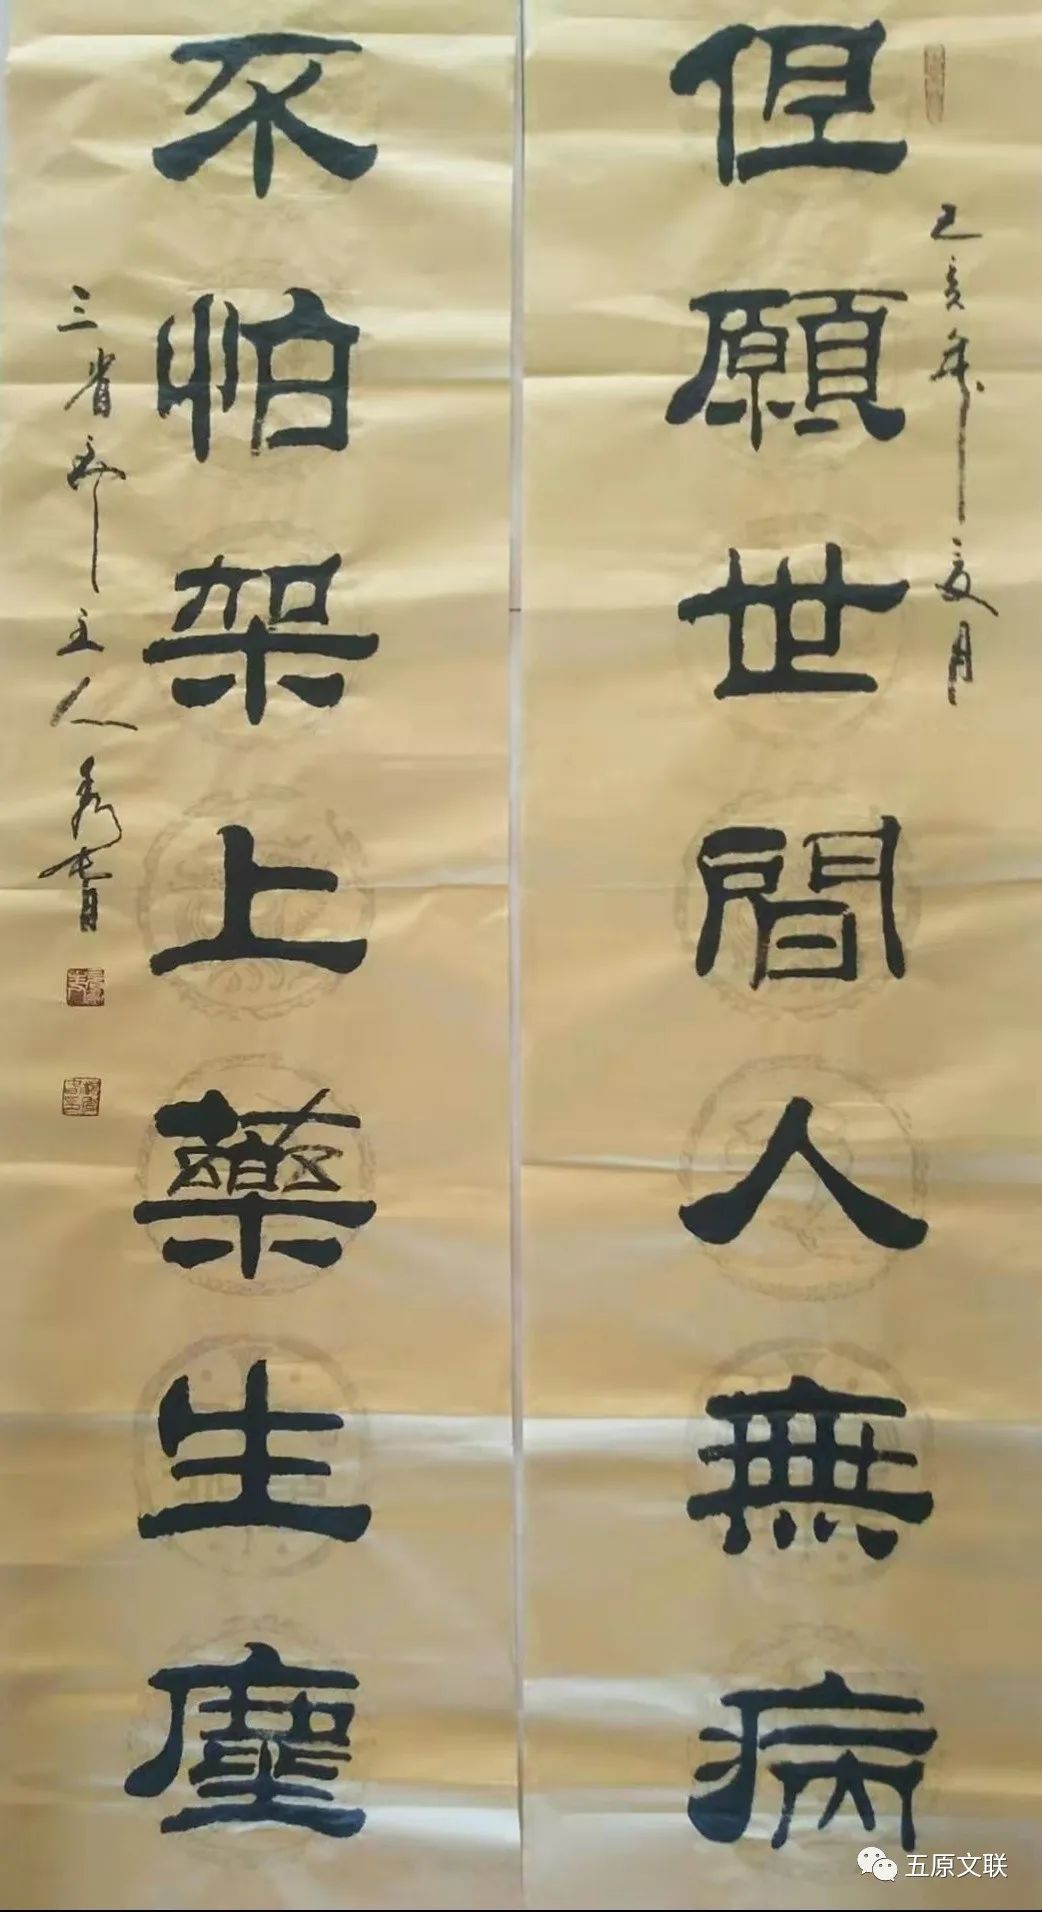 己亥年夏月
但願世間人無病
不怕架上藥生塵
三省齋主人
五原文联